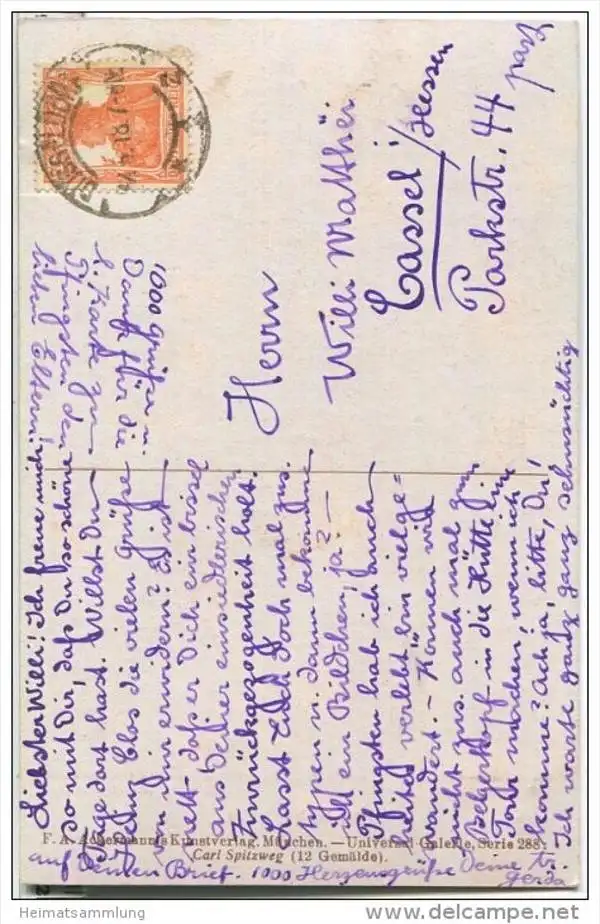 Liebster Willi! Ich freue mich
so mit Dir, daß Du so schöne
Tage dort hast. Willst Du
Clos die vielen Grüße
von mir erwidern? Es ist
nett daß er Dich ein bissel
aus Deiner einsiedlerischen
Zurückgezogenheit holt.
Lasst Euch doch mal zus.
typen u. dann bekomme
ich ein Bildchen, ja? —
Pfingsten hab ich auch
verlebt bin vielge=
wandert. — Können wir
nicht zus. auch mal zum
in die Hütte eine
Tour machen, wenn ich
komme? Ach ja, bitte, Du!
Ich warte ganz ganz sehnsüchtig
auf Deinen Brief. 1000 Herzensgrüße Deine tr.
Gerda
1000 Grüße u.
Dank für die
l. Karte zu
Pfingsten den
lieben Eltern!
Herrn
Willi Matthëi
Cassel / Hessen
Parkstr. 44 part
F. A. Ackermann's Kunstverlag, München. — Universal-Galerie, Serie 288:
Carl Spitzweg (12 Gemälde).
Heimatsammlung
www.delcampe.net